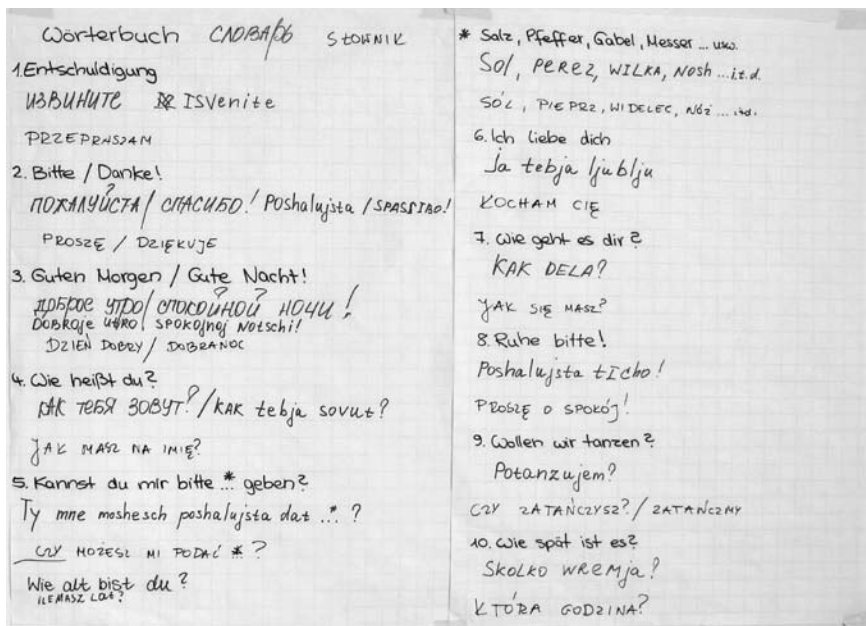 Wörterbuch СЛОВАРЬ SŁOWNIK
1. Entschuldigung
ИЗВИНИТЕ ISVenite
PRZEPRASZAM
2. Bitte / Danke!
ПОЖАЛУЙСТА / СПАСИБО! Poshalujsta / SPASSIBO!
PROSZĘ / DZIĘKUJE
3. Guten Morgen / Gute Nacht!
ДОБРОЕ УТРО / СПОКОЙНОЙ НОЧИ!
DOBROje utro / SPOKOjnoj Notschi!
DZIEŃ DOBRY / DOBRANOC
4. Wie heißt du?
КАК ТЕБЯ ЗОВУТ? / KAK tebja sovut?
JAK MASZ NA IMIĘ?
5. Kannst du mir bitte ...* geben?
Ty mne moshesch poshalujsta dat ...* ?
CZY MOŻESZ MI PODAĆ * ?
Wie alt bist du?
ILE MASZ Lat?
* Salz, Pfeffer, Gabel, Messer ... usw.
Sol, PEREZ, WILKA, Nosh ... i.t.d.
SÓL, PIEPRZ, WIDELEC, NÓŻ ... itd.
6. Ich liebe dich
Ja tebja ljublju
KOCHAM CIĘ
7. Wie geht es dir?
KAK DELA?
JAK SIĘ MASZ?
8. Ruhe bitte!
Poshalujsta tIcho!
PROSZĘ O SPOKÓJ!
9. Wollen wir tanzen?
Potanzujem?
CZY ZATAŃCZYSZ? / ZATAŃCZMY
10. Wie spät ist es?
SKOLKO WREMja?
KTÓRA GODZINA?